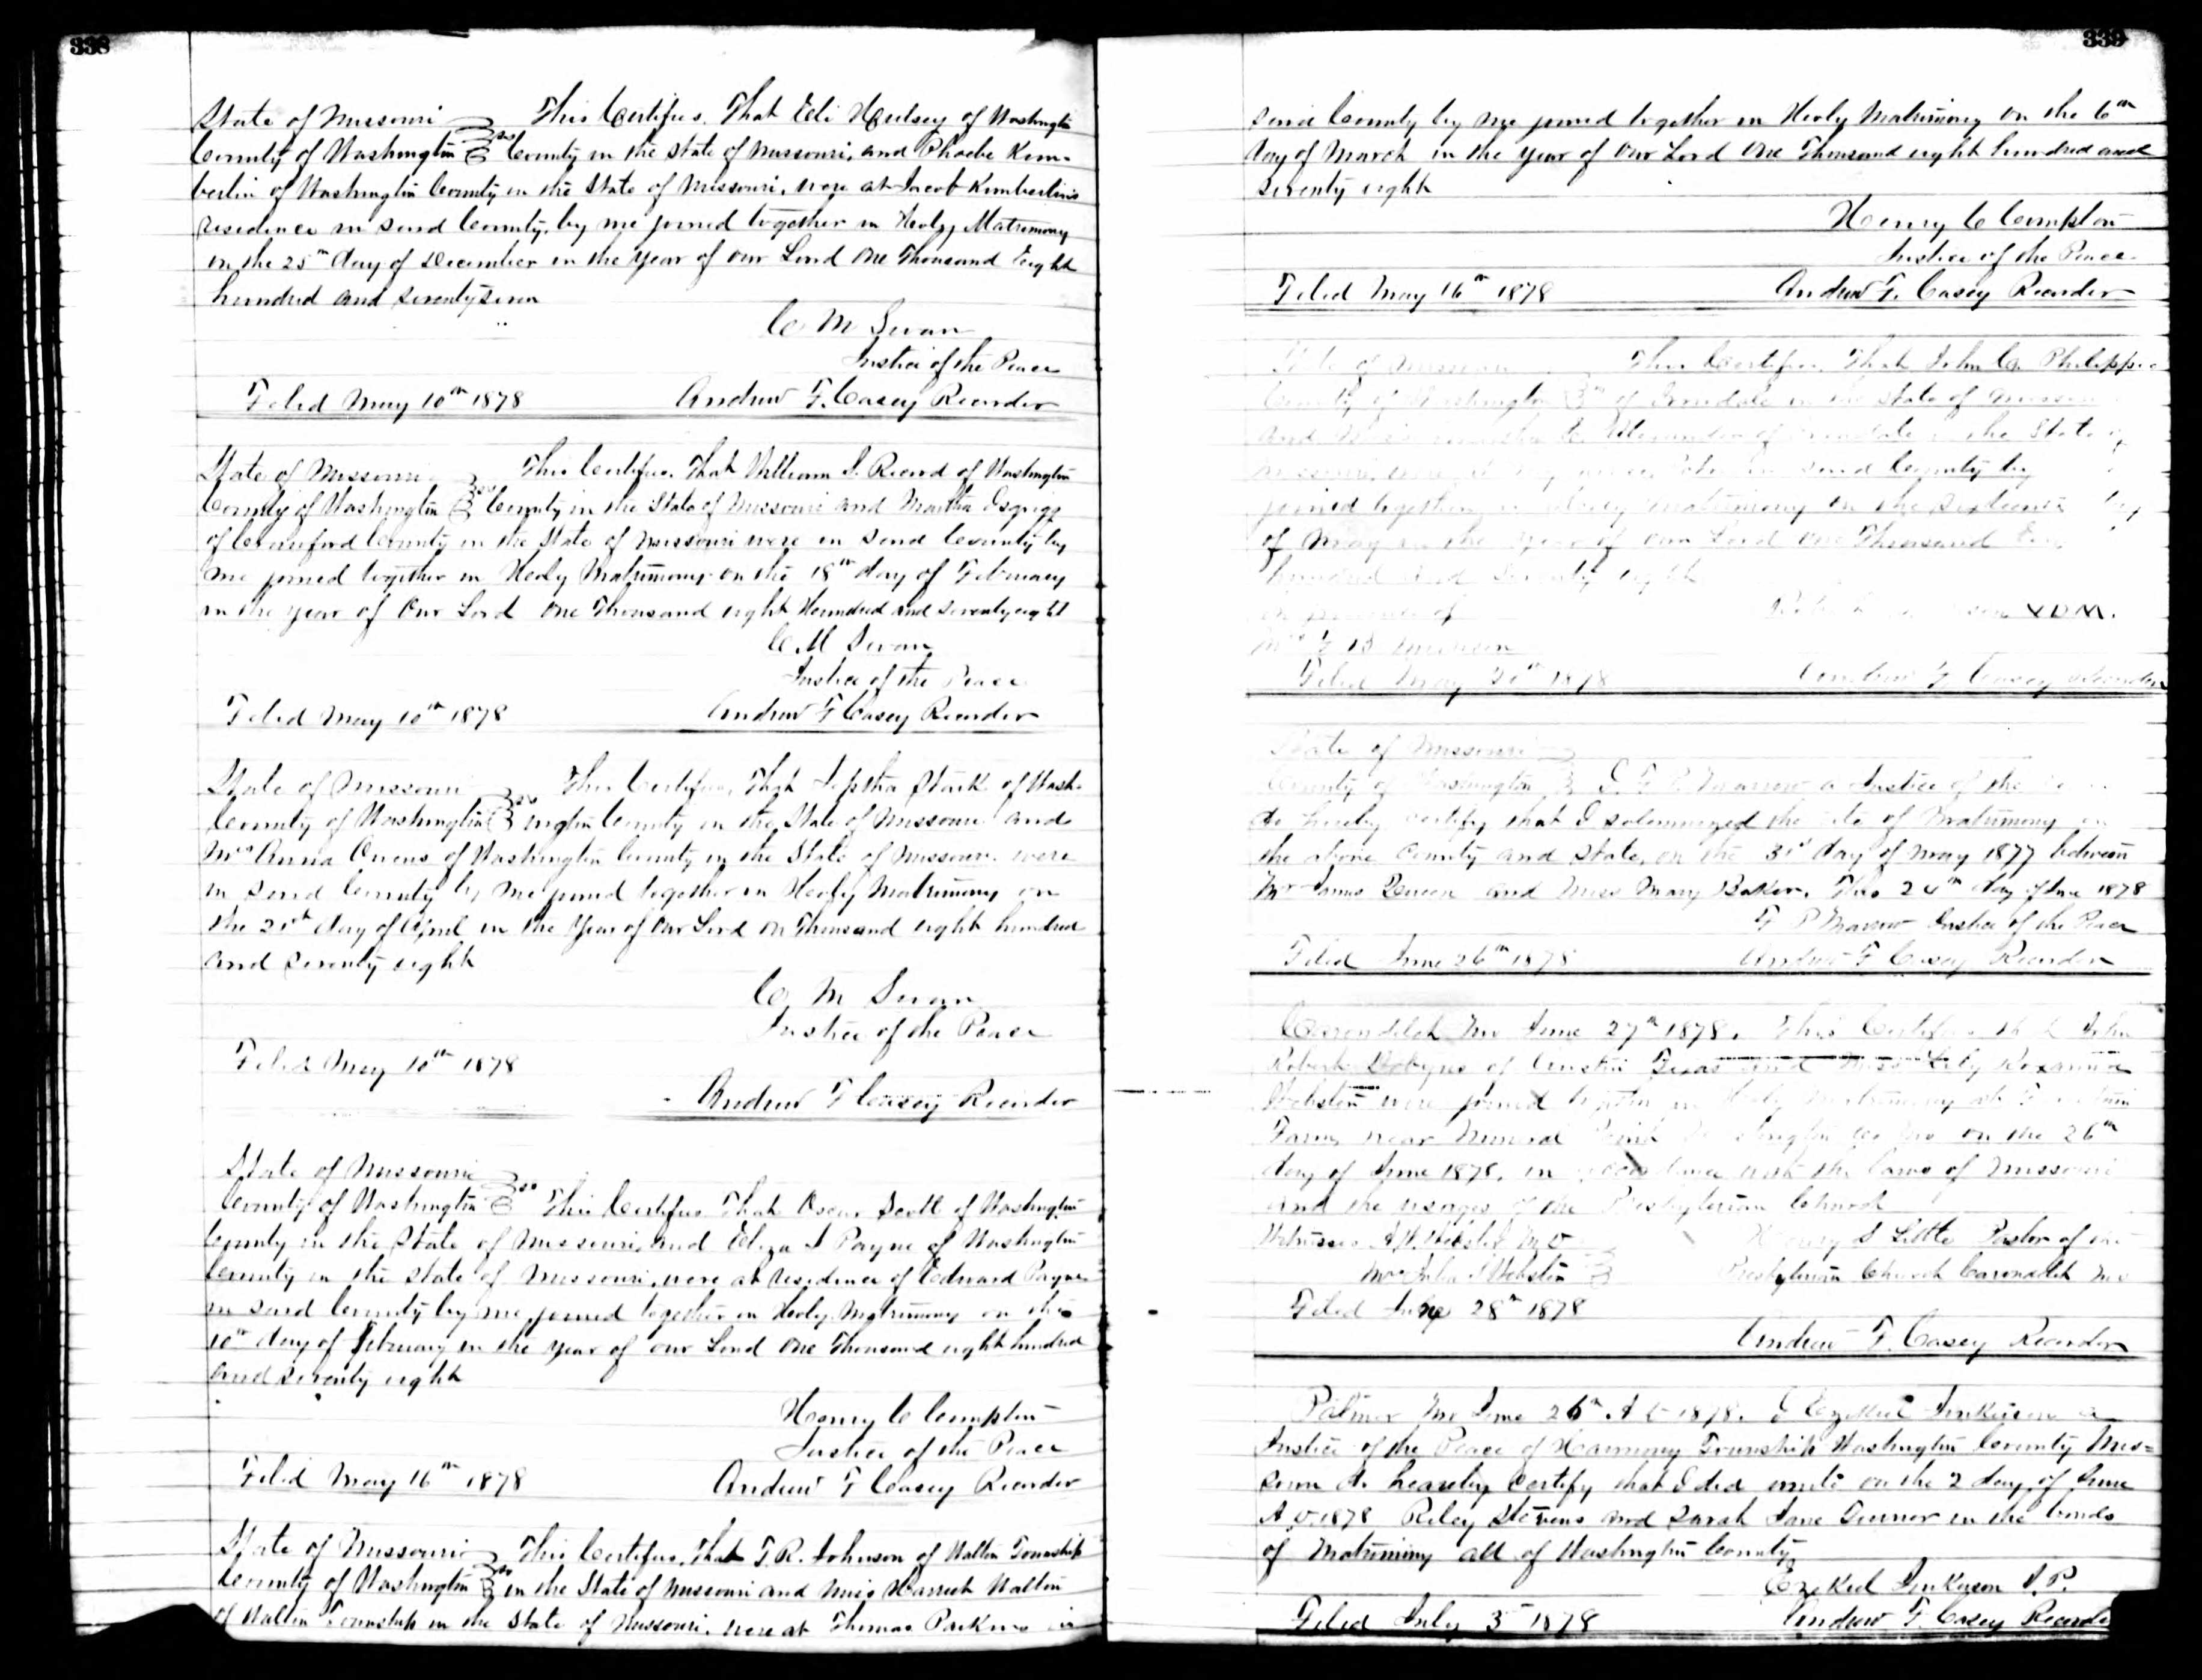 338
State of Missouri This Certifies. That Eli Hulsey of Washington
County of Washington ss County in the State of Missouri, and Phoebe Kim-
berlin of Washington County in the State of Missouri, were at Jacob Kimberlins
residence in said County, by me joined together in Holy Matrimony
on the 25th day of December in the year of our Lord One Thousand Eight
hundred and seventy seven
C M Swan
Justice of the Peace
Filed May 10th 1878 Andrew F. Casey Recorder
State of Missouri This Certifies. That William S. Record of Washington
County of Washington ss County in the State of Missouri and Martha
of Crawford County in the State of Missouri were in said County by
me joined together in Holy Matrimony on the 18th day of February
in the year of Our Lord One Thousand eight Hundred and seventy eight
C. M Swan
Justice of the Peace
Filed May 10th 1878 Andrew F Casey Recorder
State of Missouri This Certifies, That Jeptha Stark of Wash-
County of Washington ss ington County in the State of Missouri and
Mrs Anna Owens of Washington County in the State of Missouri were
in said County by me joined together in Holy Matrimony on
the 21st day of April in the year of Our Lord On Thousand eight hundred
and seventy eight
C, M Swan
Justice of the Peace
Filed May 10th 1878
Andrew F Casey Recorder
State of Missouri
County of Washington ss This Certifies That Oscar Scott of Washington
County in the State of Missouri, and Eliza J Payne of Washington
County in the State of Missouri, were at residence of Edward Payne
in said County by me, joined together in Holy Matrimony on the
10th day of February in the year of our Lord One Thousand eight hundred
and seventy eight
Henry C Compton
Justice of the Peace
Filed May 16th 1878 Andrew F Casey Recorder
State of Missouri This Certifies, That T. R. Johnson of Walton Township
County of Washington ss in the State of Missouri and Miss Harriet Walton
of Walton Township in the State of Missouri, were at Thomas Parkins in
339
said County by me joined together in Holy Matrimony on the 6th
day of March in the year of Our Lord One Thousand eight hundred and
seventy eight
Henry C Compton
Justice of the Peace
Filed May 16th 1878 Andrew F. Casey Recorder
State of Missouri This Certifies That John C. Philippe
County of Washington ss of Irondale in the State of Missouri
and Alexander of Irondale in the State of
Missouri, were at in said County by
joined together in Holy Matrimony on the Sixteenth day
of May in the year of our Lord One Thousand
hundred and seventy eight
In presence of V.D.M.
Filed May 1878 Andrew F Casey Recorder
State of Missouri
County of Washington I F P a Justice of the
do hereby certify that I solemnized the rite of Matrimony in
the above County and State, on the 31st day of May 1877 between
Mr James Queen and Miss Mary Baker. This 24th day of June 1878
F P Justice of the Peace
Filed June 26th 1878 Andrew F Casey Recorder
Carondelet Mo June 27th 1878. This Certifies that John
Robert of Austin Texas and Miss Lily Roxanna
Webster were joined together in Holy Matrimony at
Farm, near Mineral Point Washington Co Mo on the 26th
day of June 1878, in accordance with the laws of Missouri
and the usages of the Presbyterian Church
Witnesses A. W. Webster M D Henry S Little Pastor of the
Mrs Julia S Webster Presbyterian Church Carondelet Mo
Filed June 28th 1878
Andrew F. Casey Recorder
Palmer Mo June 26th A D 1878. I Ezekiel Jinkerson a
Justice of the Peace of Harmony Township Washington County Mis=
souri do heareby certify that I did unite on the 2 day, of June
A.D. 1878 Riley Stevens and Sarah Jane Turner in the bonds
of Matrimony all of Washington County
Ezekiel Jinkerson J. P.
Filed July 3rd 1878 Andrew F. Casey Recorder